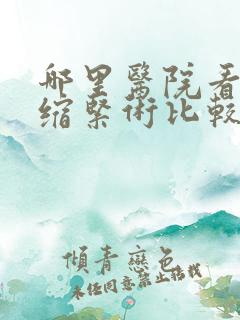 哪里醫院看
缩緊術比較
傾青戀色
未经同意禁止转载